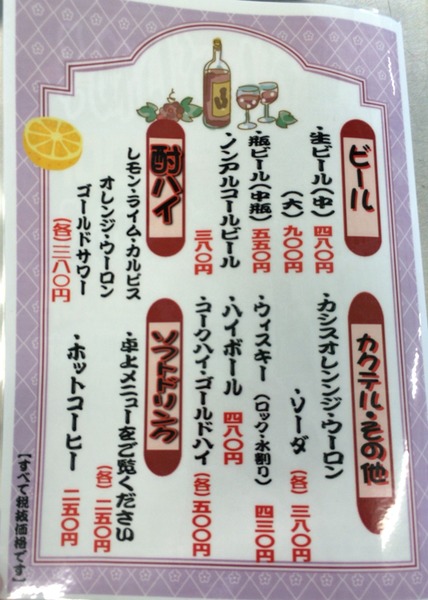 ビール
・生ビール(中) 四八〇円
(大) 九〇〇円
・瓶ビール(中瓶) 五五〇円
・ノンアルコールビール
三八〇円
酎ハイ
レモン・ライム・カルピス
オレンジ・ウーロン
ゴールドサワー
(各)三八〇円
カクテル・その他
・カシスオレンジ・ウーロン
・ソーダ (各)三八〇円
・ウィスキー(ロック・水割り)
四三〇円
・ハイボール 四八〇円
・コークハイ・ゴールドハイ
(各)五〇〇円
ソフトドリンク
・卓上メニューをご覧ください
(各)二五〇円
・ホットコーヒー 二五〇円
【すべて税抜価格です】